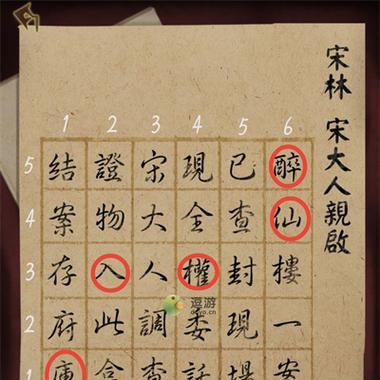 宋林 宋大人親啟
1 2 3 4 5 6
5
4
3
2
1
醉仙樓一案
已查封現場
現全權委
宋大人調查
證物入此
結案存府庫
逗游
doyo.cn